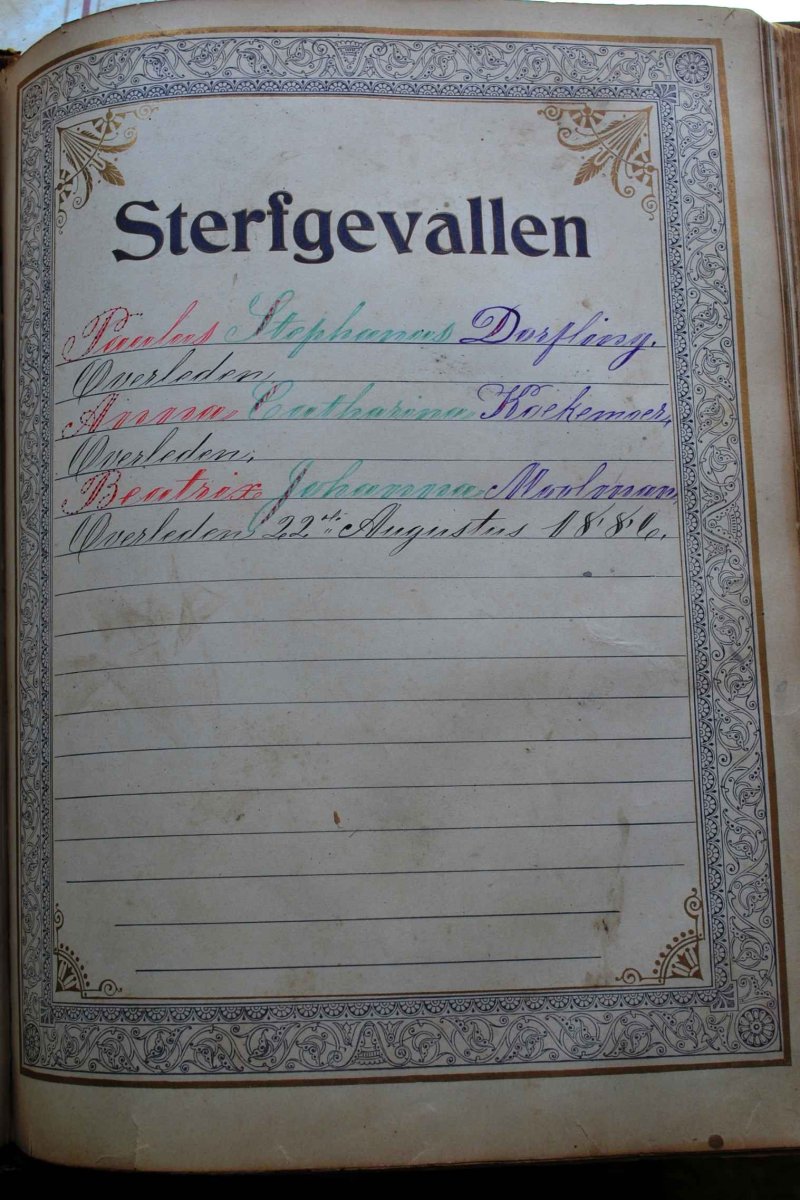 Sterfgevallen
Paulus Stephanus Dorfling.
Overleden,
Anna Catharina Koekemoer,
Overleden,
Beatrix Johanna Moolman,
Overleden, 22ste Augustus 1886.